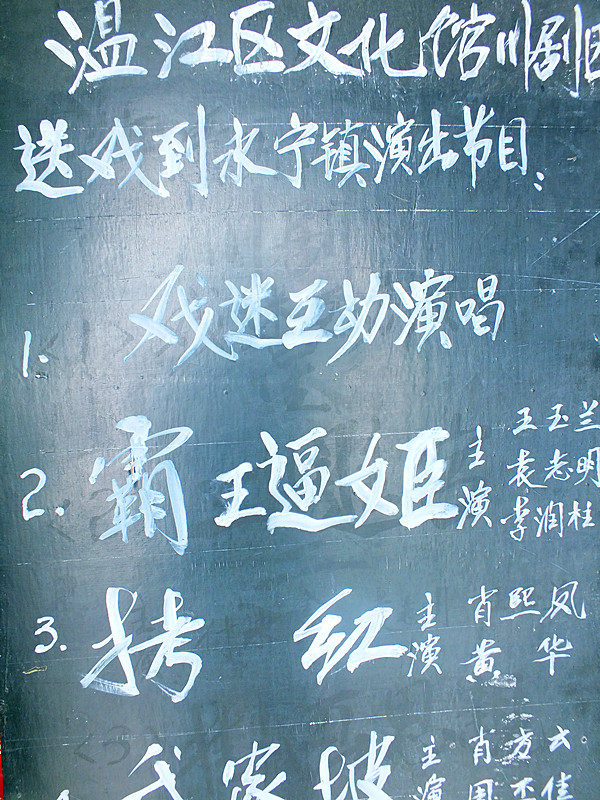 温江区文化馆川剧团
送戏到永宁镇演出节目:
1. 戏迷互动演唱
2. 霸王逼姬 主演 王玉兰 袁志明 李润桂
3. 拷 红 主演 肖熙凤 黄 华
家坡 主演 肖方